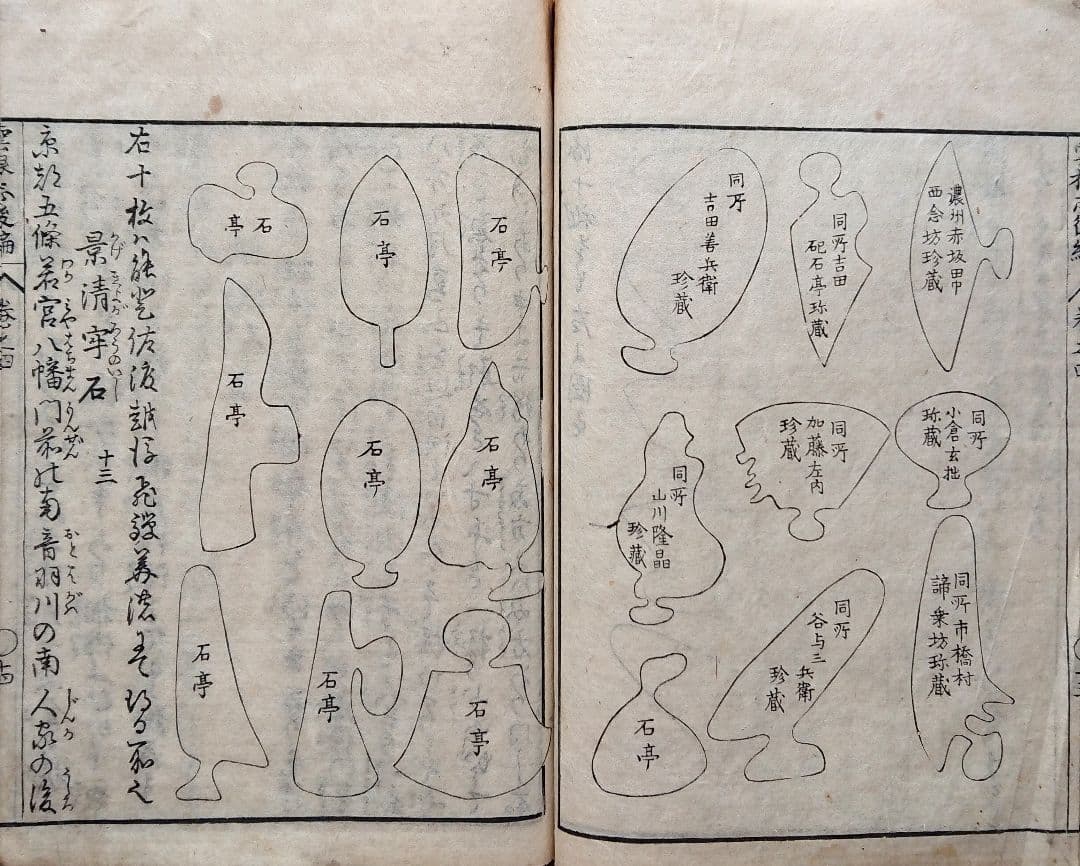 濃州赤坂田中
西念坊珍蔵
同所
小倉玄拙
珍蔵
同所市橋村
諦乗坊珍蔵
同所吉田
石亭珍蔵
同所
加藤左内
珍蔵
同所
谷与三兵衛
珍蔵
同所
吉田善兵衛
珍蔵
同所
山川隆晶
珍蔵
石亭
石亭
石亭
石亭
石亭
石亭
石亭
石亭
石亭
石亭
右十枚ハ能登佐渡越後飛騨美濃
景清牢石 十三
京都五條若宮八幡門前の南音羽川の南人家の後
雲根志後編 巻之四